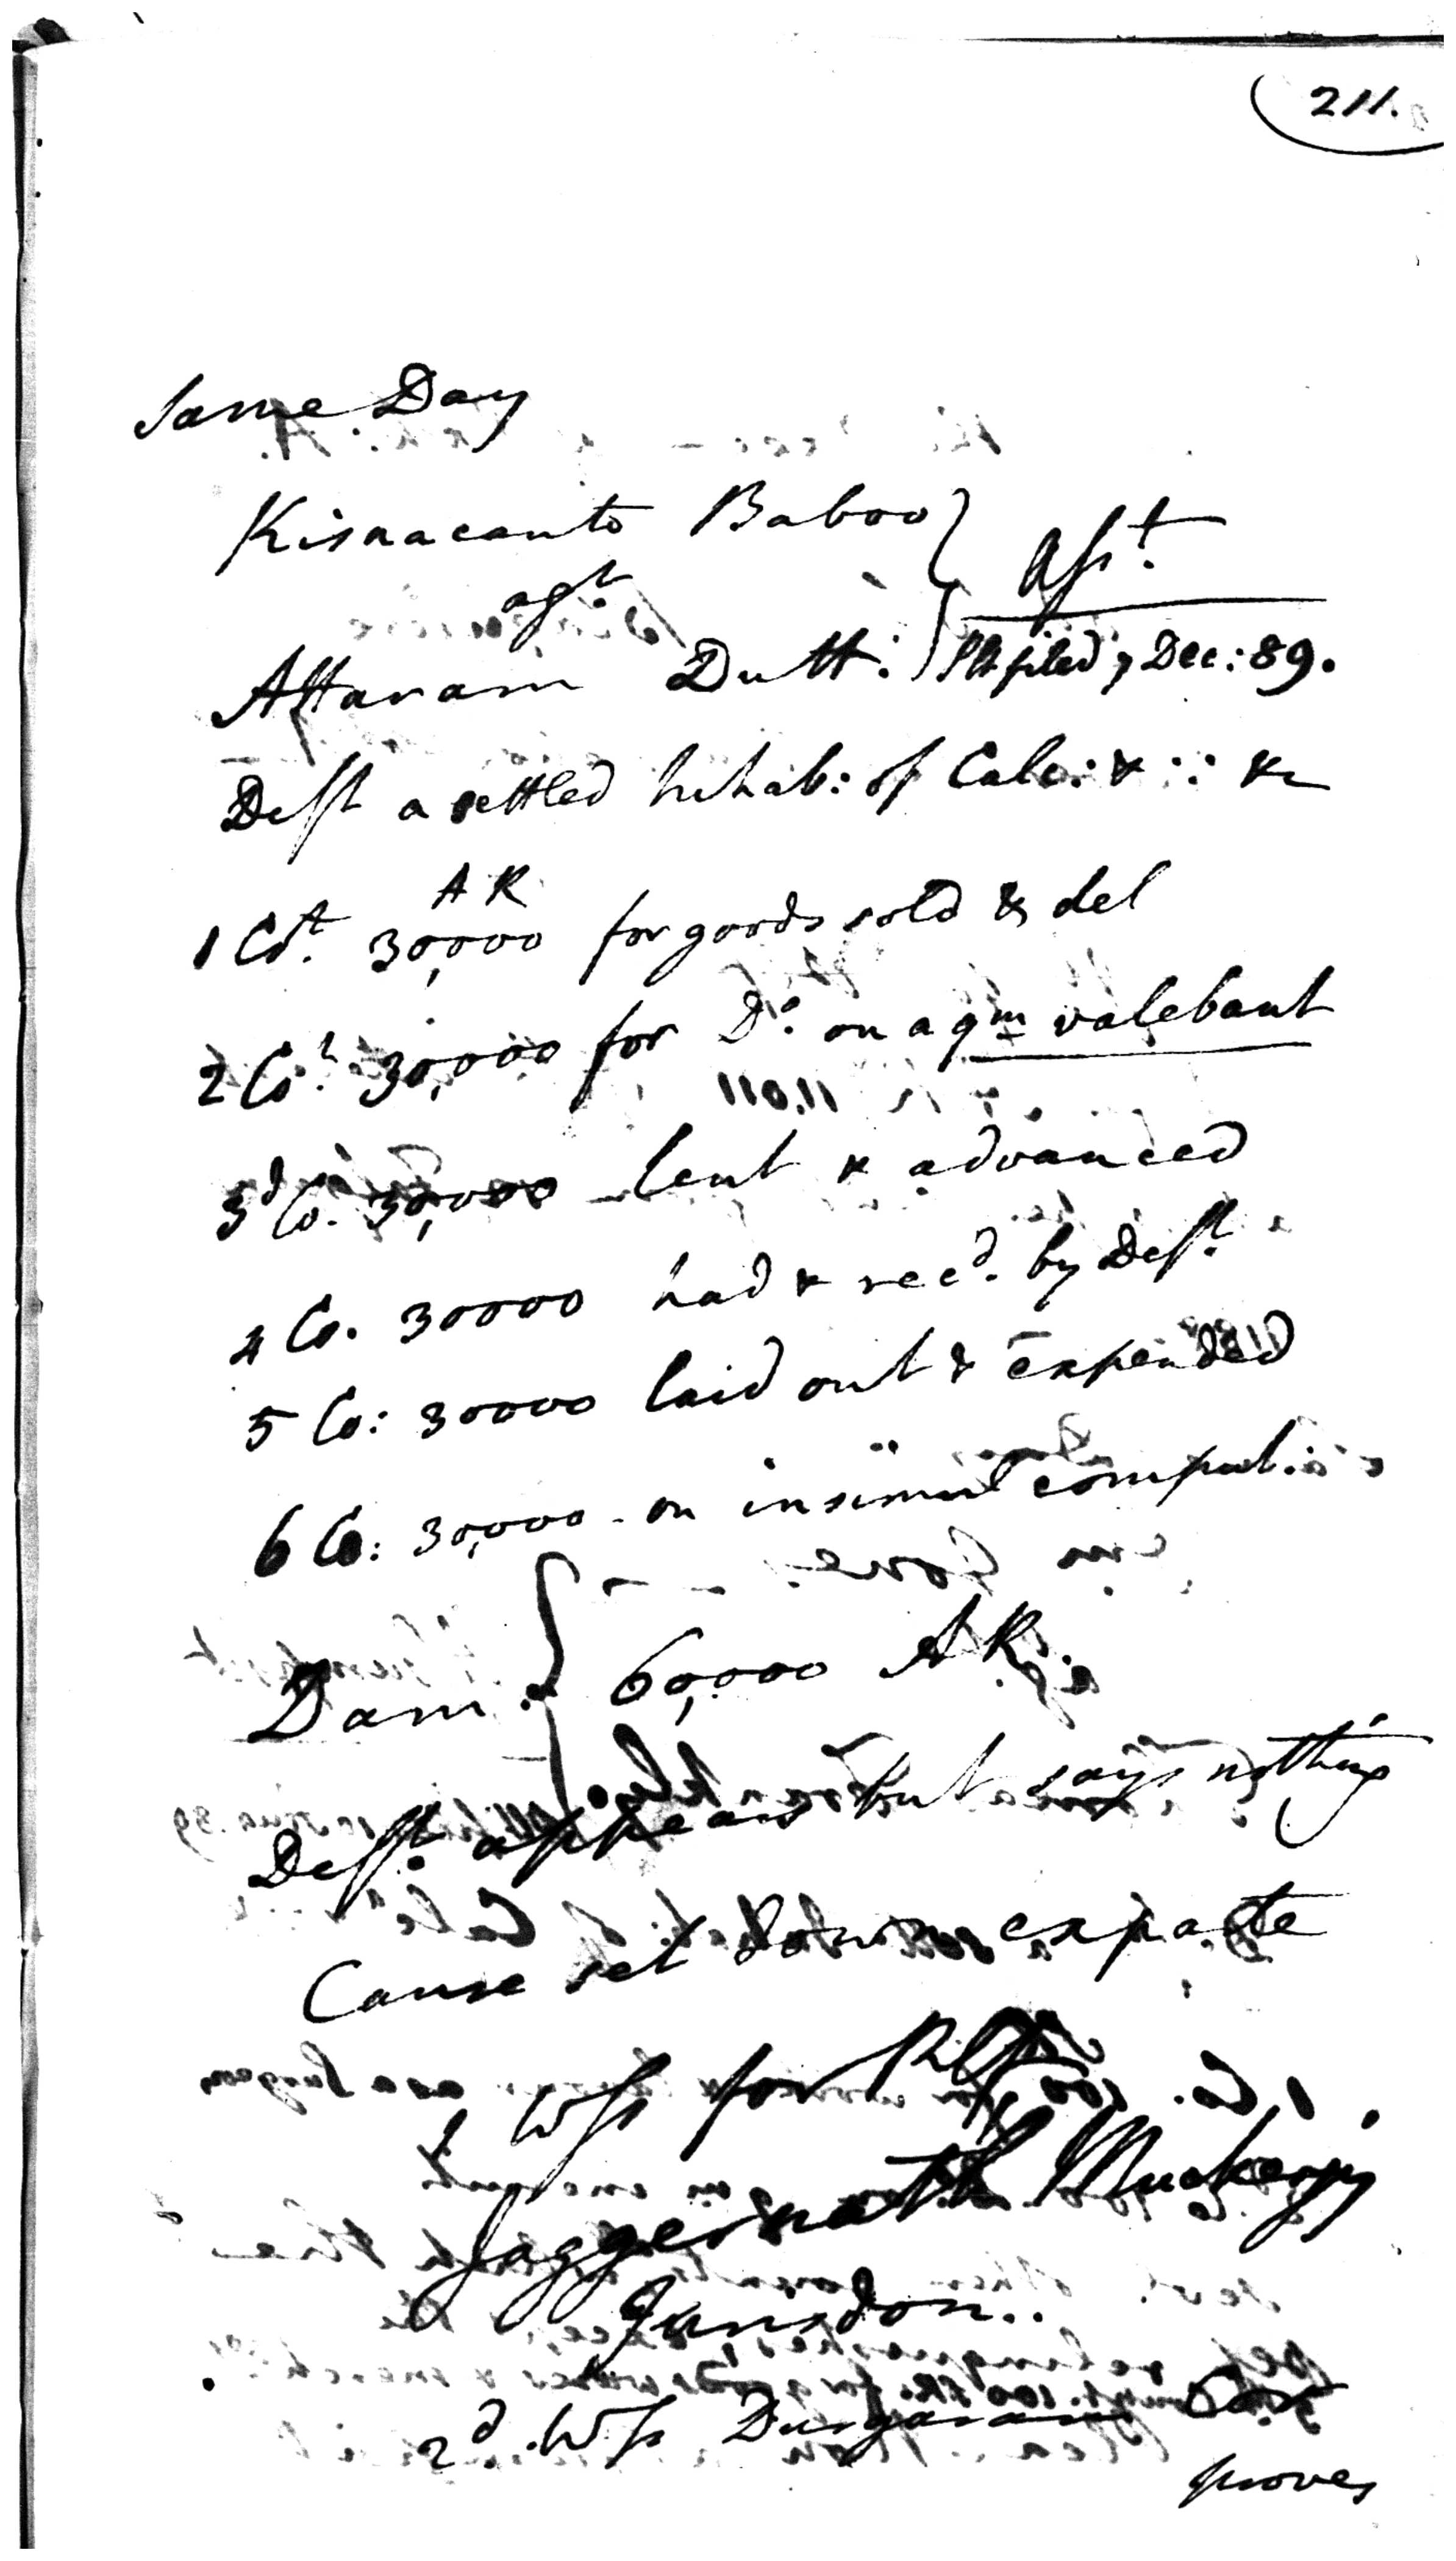 211.
Same Day
Kisnacanto Baboo
agt
Asst.
Attaram Dutt:
Plt filed 7 Dec: 89.
Deft a settled Inhab: of Calc: & :: &c
A R
1 Ct. 30,000 for goods sold & del
2 Ct. 30,000 for Do. on a qm valebant
3d Co. 30,000 lent & advanced
4 Co. 30000 had & recd. by Deft.
5 Co: 30000 laid out & expended
6 Co: 30,000 - on insimul comput:
Dam: 60,000 A R.
Deft. appears but says nothing
Cause set down exparte
1 Wss for Plff
Jaggernath Muckerjy
Jurisdon..
2d. Wss Durgaram
proves